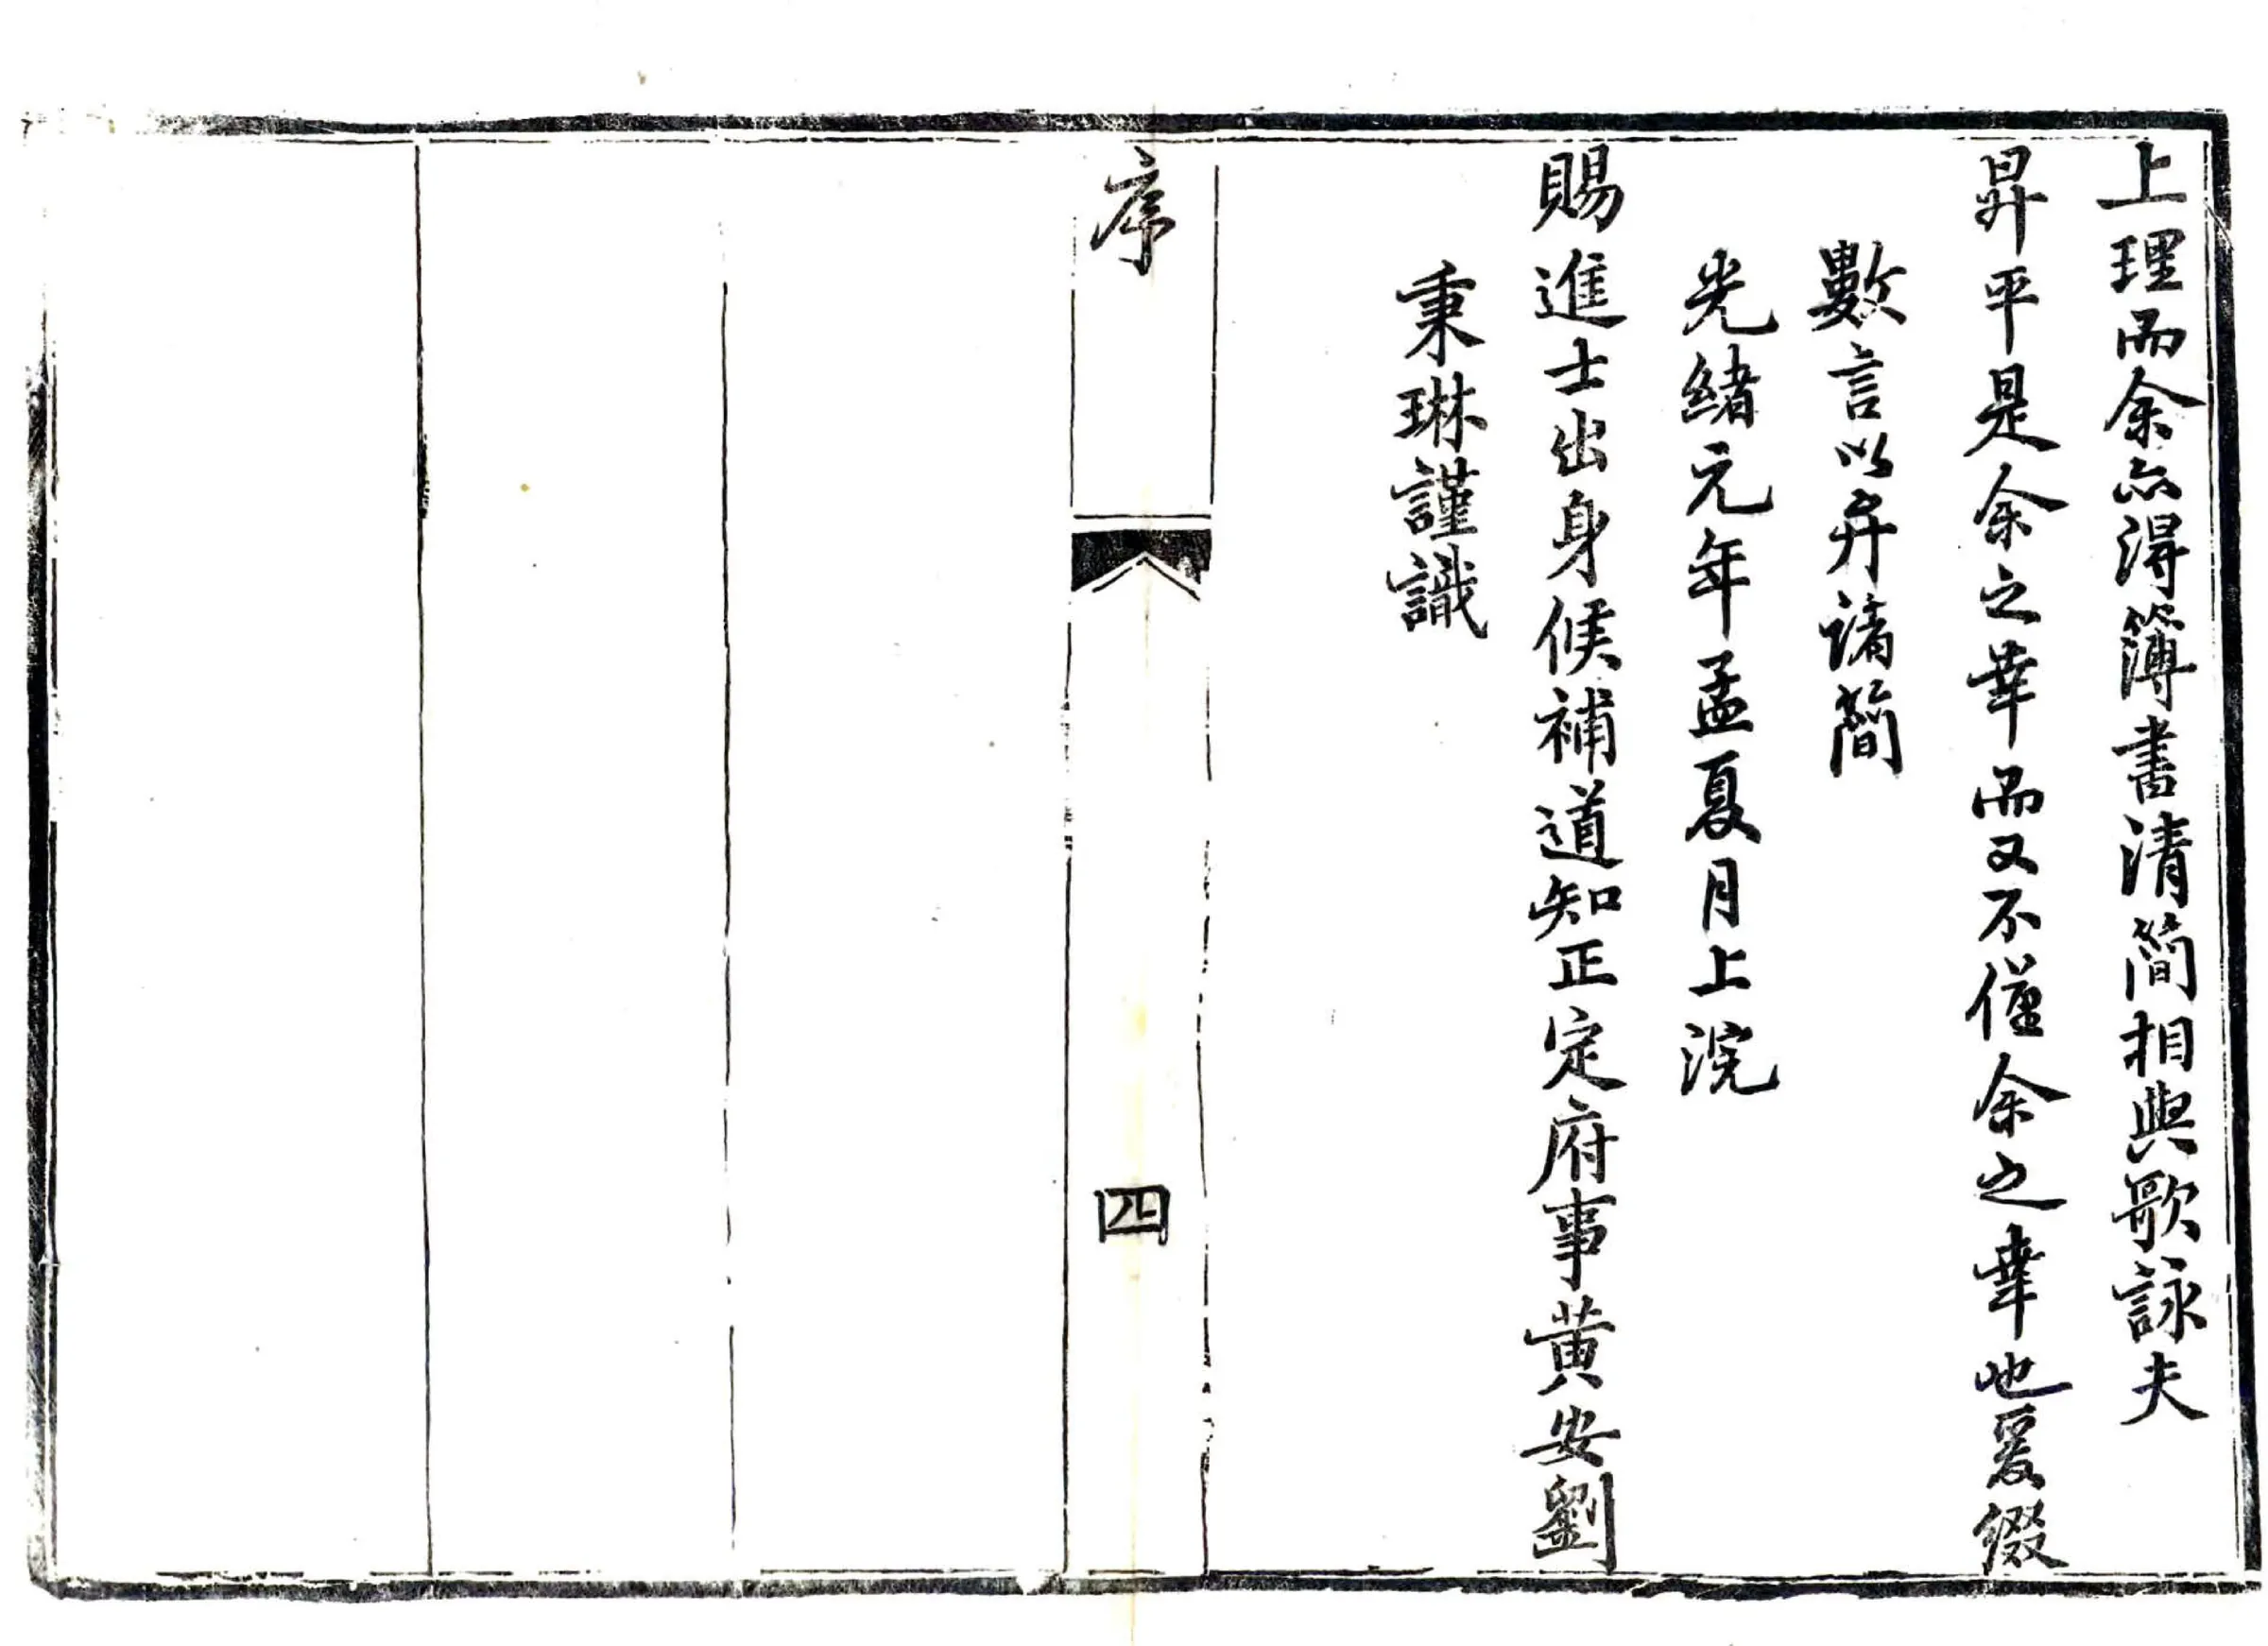 上理而余亦得簿書清簡相與歌詠夫
昇平是余之幸而又不僅余之幸也爰綴
數言以弁諸簡
光緒元年孟夏月上浣
賜進士出身候補道知正定府事黃安劉
秉琳謹識
序
四